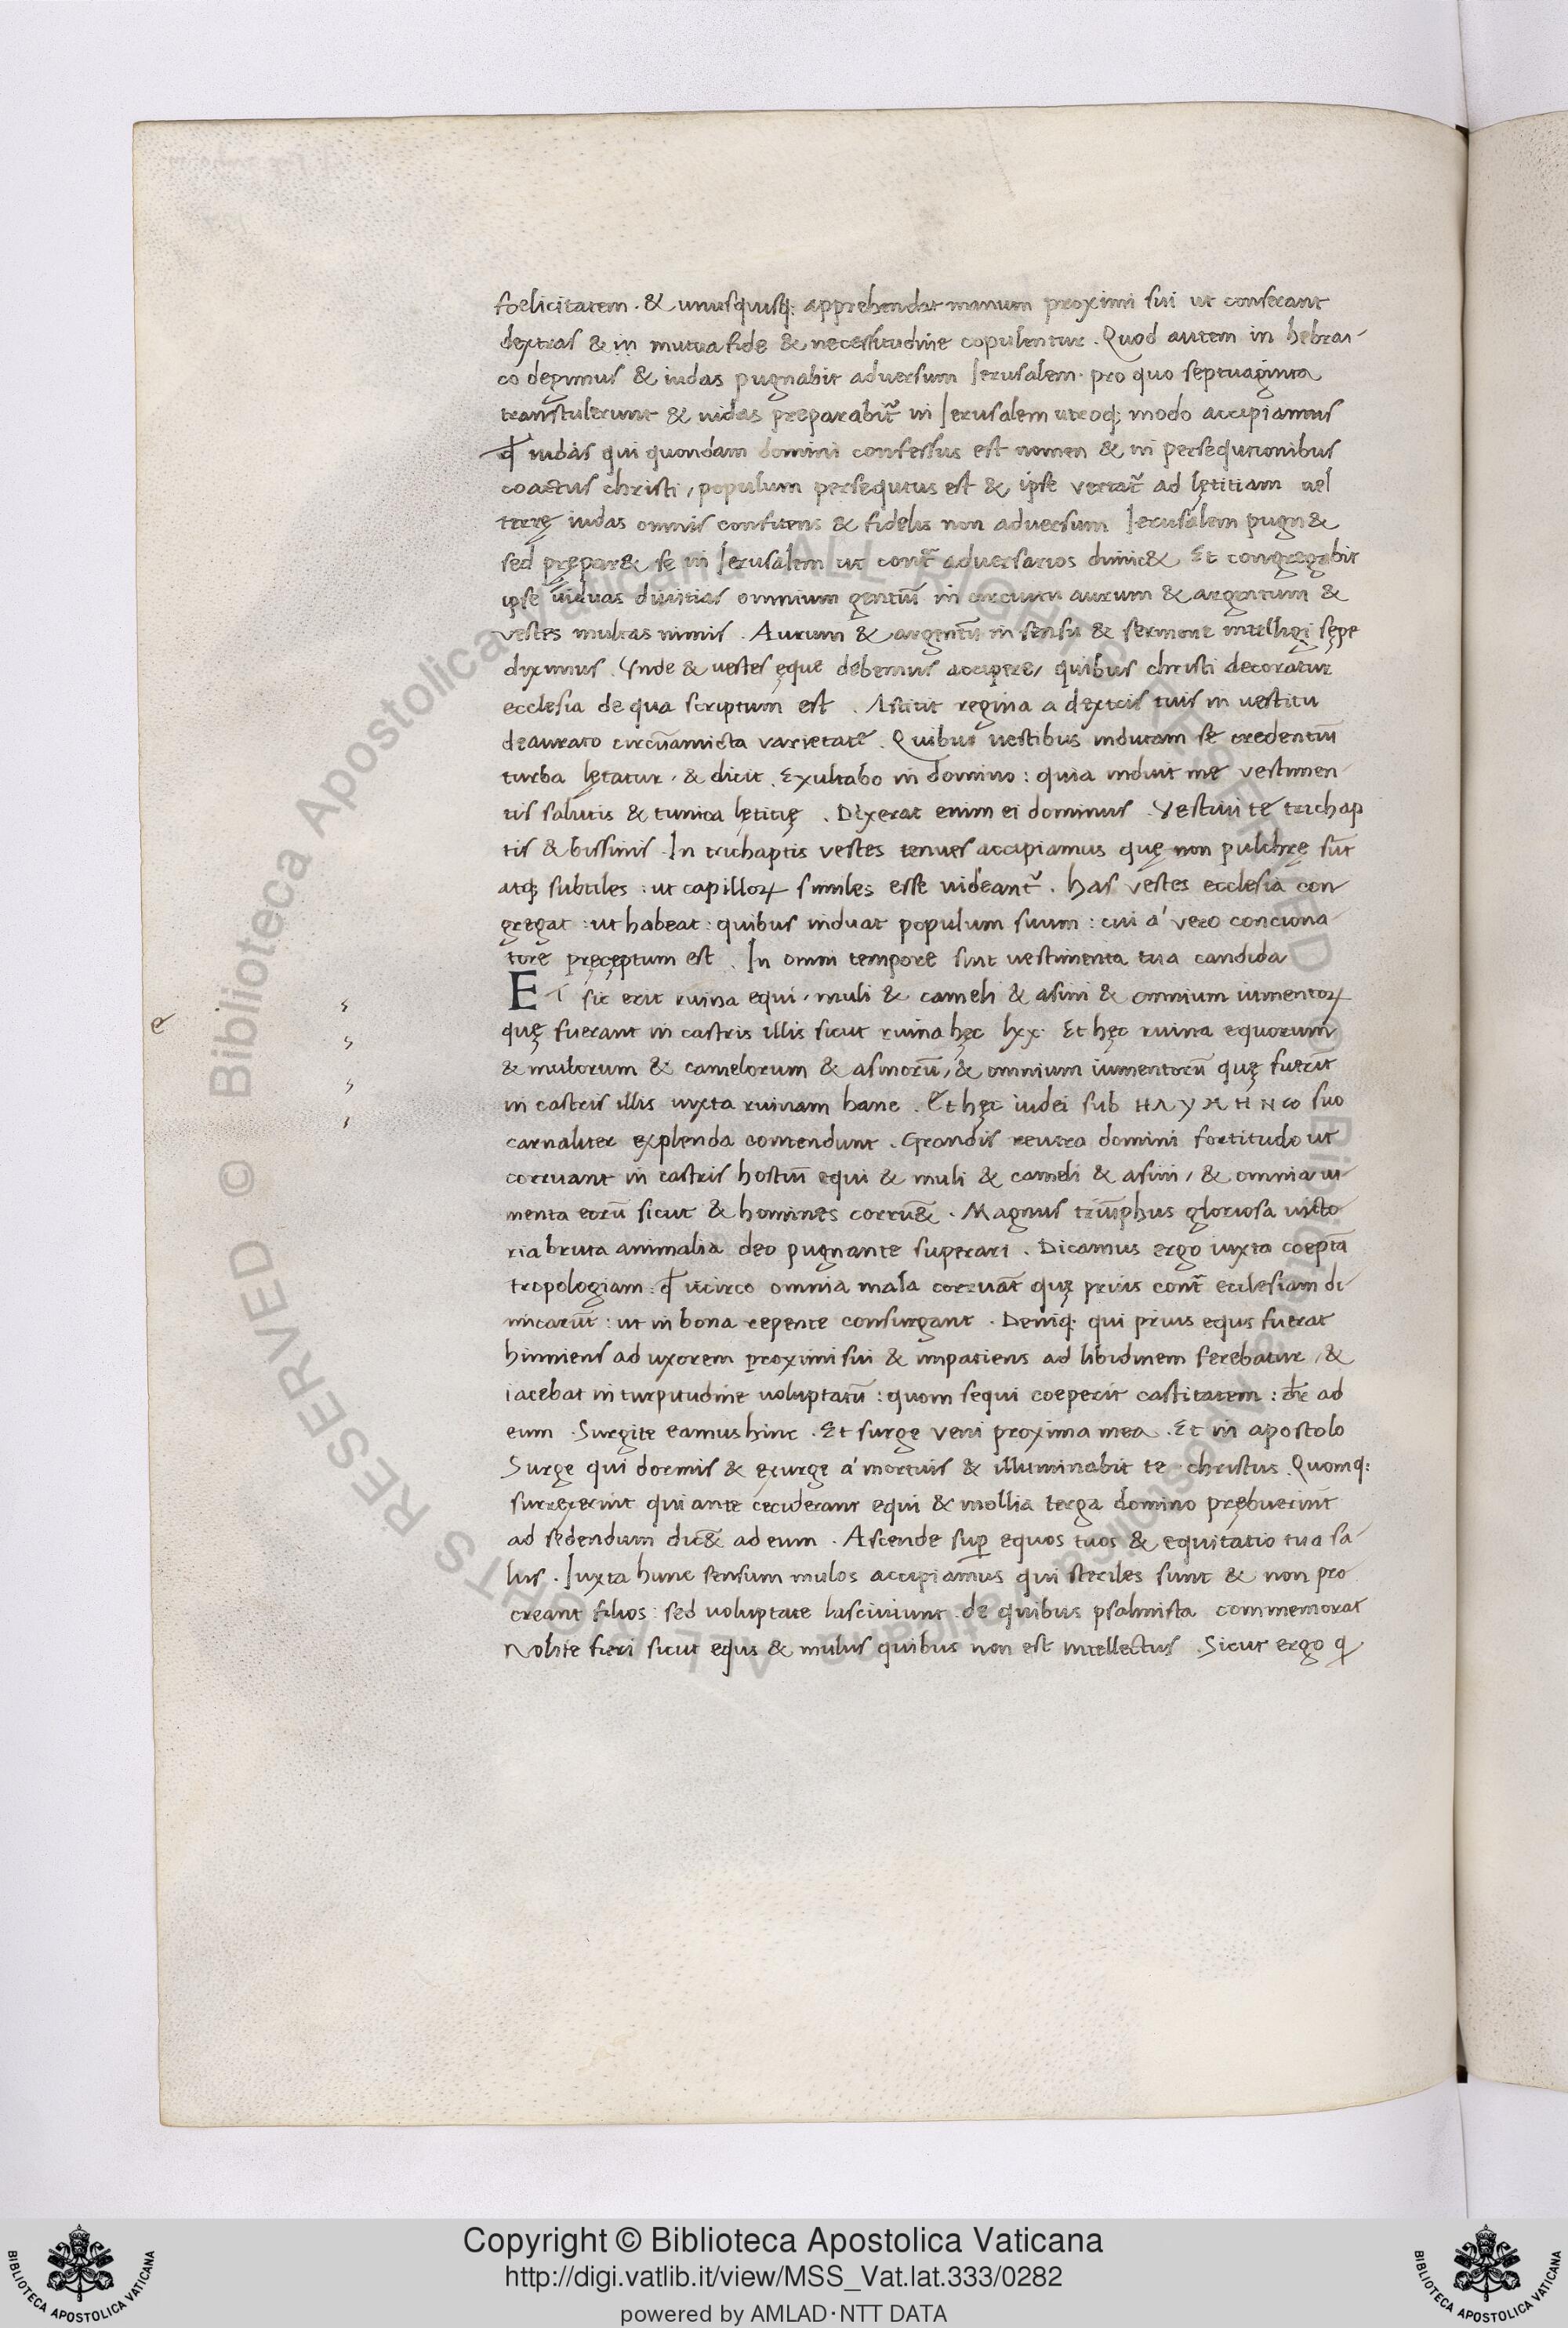 foelicitatem · & unusquisq: apprehendat manum proximi sui ut conserant
dextras & in mutua fide & necessitudine copulentur . Quod autem in hebrai-
co legimus & iudas pugnabit adversum Ierusalem · pro quo septuaginta
transtulerunt & iudas preparabit᷑ in Ierusalem utroq; modo accipiamus
qđ iudas qui quondam domini confessus est nomen & in persequtionibus
coactus christi , populum persequtus est & ipse vertat᷑ ad lętitiam uel
iudas omnis confitens & fidelis non adversum Ierusalem pugn&
sed prępar& se in Ierusalem ut cont᷑ adversarios dimic& Et congregabit
ipse divitias omnium gentiū in circuitu aurum & argentum &
vestes multas nimis . Aurum & argentū in sensu & sermone intelligi sępe
diximus . Vnde & uestes ęque debemus accipere, quibus christi decoratur
ecclesia de qua scriptum est . Astitit regina a dextris tuis in vestitu
deaurato circūamicta varietate . Quibus vestibus indutam se credentiū
turba lętatur , & dicit . Exultabo in domino : quia induit me vestimen-
tis salutis & tunica lętitię . Dixerat enim ei dominus . Vestivi te trichap
tis & bissinis . In trichaptis vestes tenues accipiamus quę non pulchrę sūt
atq; subtiles : ut capilloꝝ similes esse uideant᷑ . has vestes ecclesia con-
gregat : ut habeat : quibus induat populum suum : cui a' vero conciona-
tore pręceptum est . In omni tempore sint uestimenta tua candida
ET sic erit ruina equi , muli & cameli & asini & omnium iumentoꝝ
quę fuerant in castris illis sicut ruina hęc lxx · Et hęc ruina equorum
& mulorum & camelorum & asinorū , & omnium iumentorū quę fuerūt
in castris illis iuxta ruinam hanc . Et hęc iudei sub ΗΛΥΜΗΝω suo
carnaliter explenda contendunt . Grandis revera domini fortitudo ut
corruant in castris hostiū equi & muli & cameli & asini , & omnia iu-
menta eorū sicut & homines corru& . Magnus triūphus gloriosa victo-
ria bruta animalia deo pugnante superari . Dicamus ergo iuxta coeptā
tropologiam : qđ iccirco omnia mala corruāt quę prius cont᷑ ecclesiam di-
micarūt : ut in bona repente consurgant . Deniq; qui prius equs fuerat
hinniens ad uxorem proximi sui & impatiens ad libidinem ferebatur , &
iacebat in turpitudine voluptatū : quom sequi coeperit castitatem : dr̄ ad
eum . Surgite eamus hinc . Et surge veni proxima mea . Et in apostolo
Surge qui dormis & exurge a' mortuis & illuminabit te christus . Quomq:
surrexerint qui ante ceciderant equi & mollia terga domino prębuerint
ad sedendum dic& ad eum . Ascende sup̱ equos tuos & equitatio tua sa-
lus . Iuxta hunc sensum mulos accipiamus qui steriles sunt & non pro
creant filios : sed voluptate lasciviunt . de quibus psalmista commemorat
Nolite fieri sicut equs & mulus quibus non est intellectus . Sicut ergo
e
Copyright © Biblioteca Apostolica Vaticana
http://digi.vatlib.it/view/MSS_Vat.lat.333/0282
powered by AMLAD·NTT DATA
BIBLIOTECA APOSTOLICA VATICANA
BIBLIOTECA APOSTOLICA VATICANA